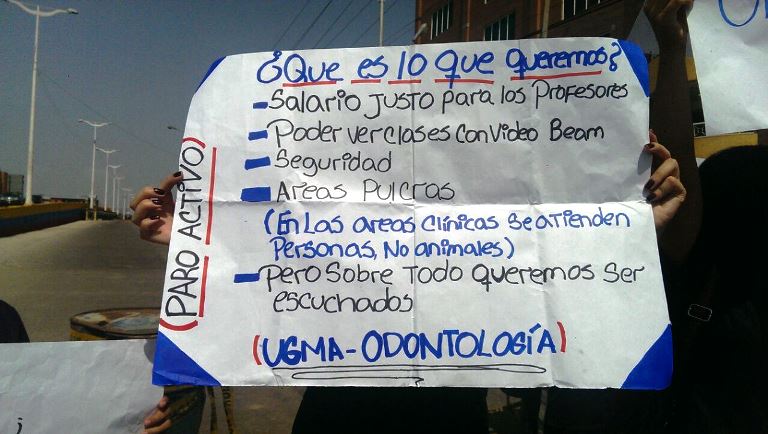 ¿Que es lo que queremos?
- Salario Justo para los Profesores
- Poder ver clases con Video Beam
- Seguridad
- Areas Pulcras
(En Las areas clínicas se aTienden
Personas, No animales)
- Pero Sobre Todo queremos Ser
escuchados
(UGMA-ODONTOLOGÍA)
(PARO ACTIVO)